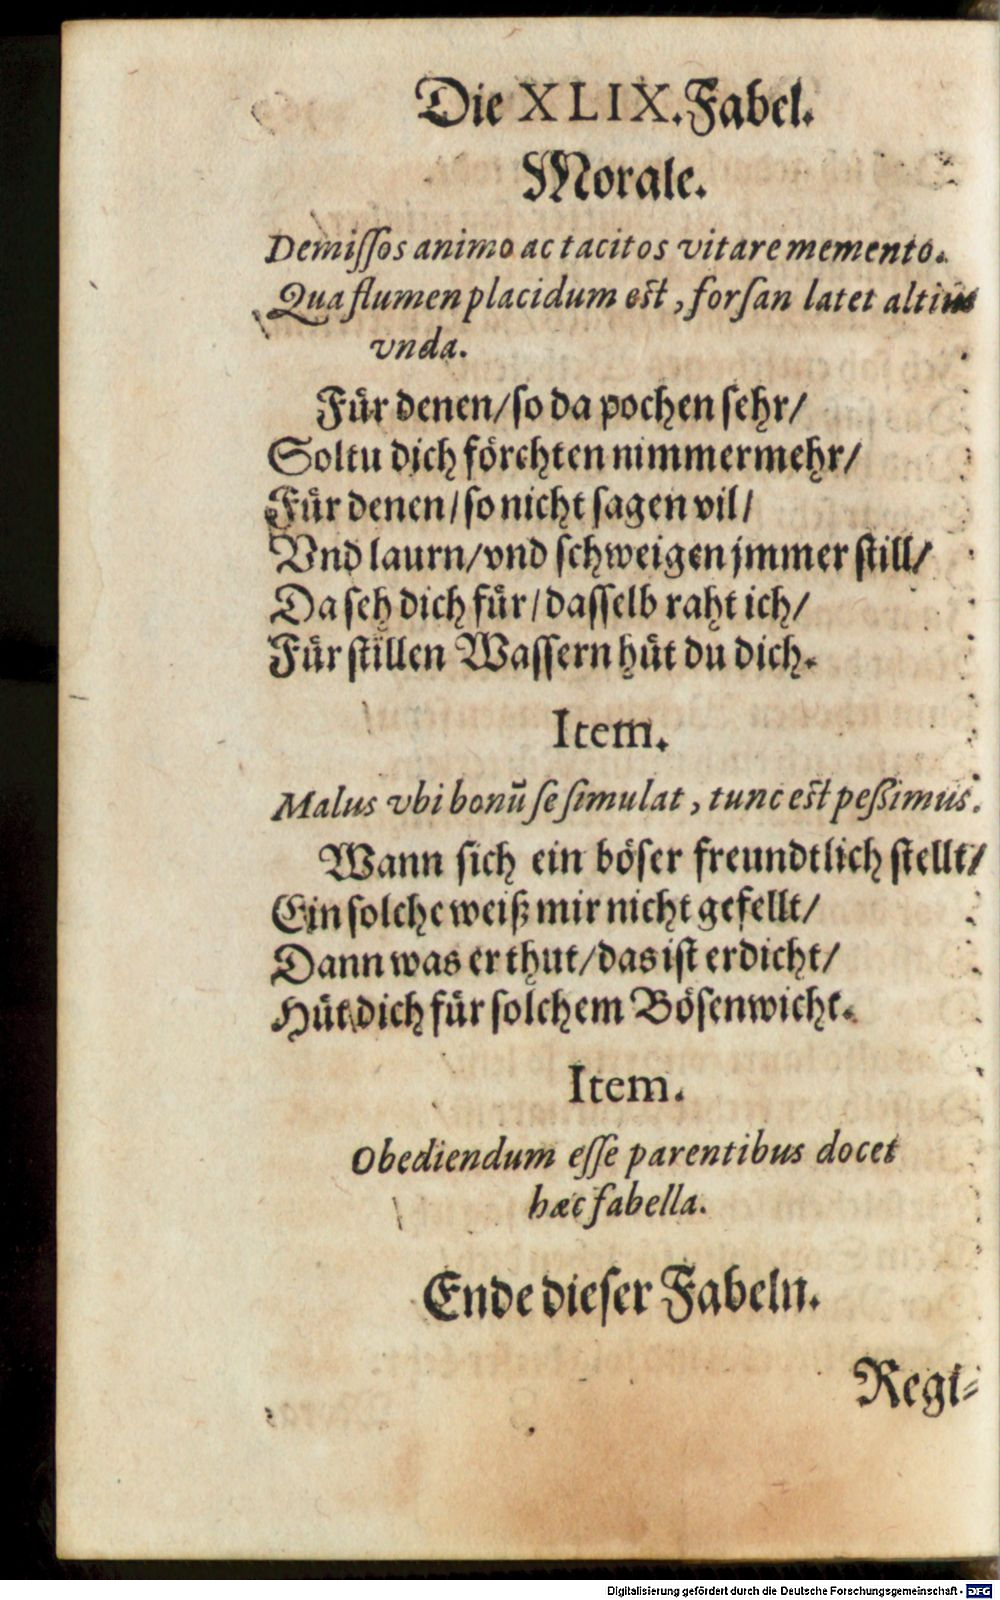 Die XLIX. Fabel.
Morale.
Demiſſos animo ac tacitos vitare memento.
Qua flumen placidum est, forſan latet altius
vnda.
Fuͤr denen/ ſo da pochen ſehr/
Soltu dich foͤrchten nimmermehr/
Fuͤr denen/ ſo nicht ſagen vil/
Vnd laurn/ vnd ſchweigen jmmer ſtill/
Da ſeh dich fuͤr/ daſſelb raht ich/
Fuͤr ſtillen Waſſern huͤt du dich.
Item.
Malus vbi bonū ſe ſimulat, tunc est peßimus.
Wann ſich ein boͤſer freundtlich ſtellt/
Ein ſolche weiß mir nicht gefellt/
Dann was er thut/ das iſt erdicht/
Huͤt dich fuͤr ſolchem Boͤſenwicht.
Item.
Obediendum eſſe parentibus docet
hæc fabella.
Ende dieſer Fabeln.
Regi-
Digitalisierung gefördert durch die Deutsche Forschungsgemeinschaft - DFG